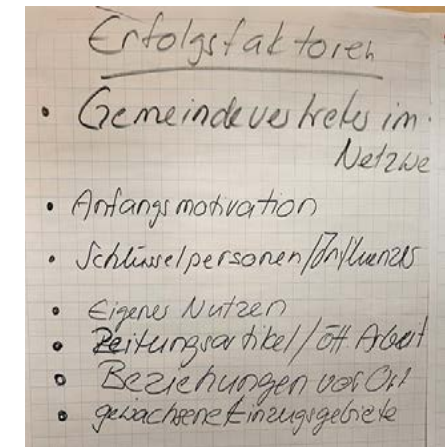 Erfolgsfaktoren
• Gemeindevertreter im
Netzwe
• Anfangsmotivation
• Schlüsselpersonen/Influenzer
• Eigener Nutzen
• Zeitungsartikel/öff Arbeit
• Beziehungen vor Ort
• gewachsene Einzugsgebiete